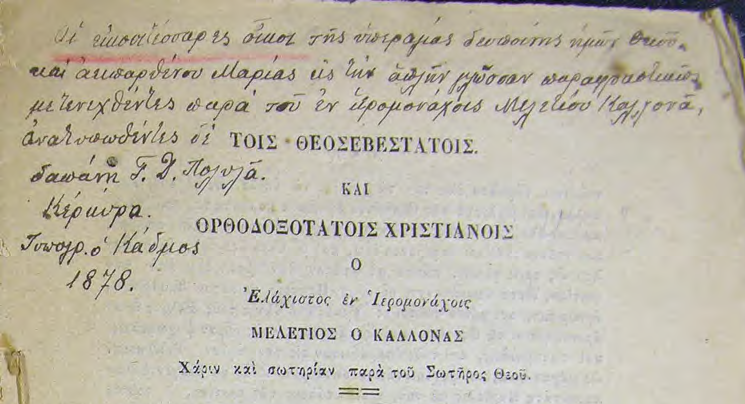 Οἱ εἰκοσιτέσσαρες οἶκοι τῆς ὑπεραγίας δεσποίνης ἡμῶν Θεοτό-
κου καὶ ἀειπαρθένου Μαρίας εἰς τὴν ἁπλῆν γλῶσσαν παραφραστικῶς
μετενεχθέντες παρὰ τοῦ ἐν ἱερομονάχοις Μελετίου Καλλονᾶ,
ἀνατυπωθέντες δὲ
ΤΟΙΣ ΘΕΟΣΕΒΕΣΤΑΤΟΙΣ.
δαπάνῃ Γ. Δ. Πολυλᾶ.
ΚΑΙ
Κέρκυρα.
ΟΡΘΟΔΟΞΟΤΑΤΟΙΣ ΧΡΙΣΤΙΑΝΟΙΣ
Τυπογρ. ὁ Κάδμος
Ο
1878.
Ἐλάχιστος ἐν Ἱερομονάχοις
ΜΕΛΕΤΙΟΣ Ο ΚΑΛΛΟΝΑΣ
Χάριν καὶ σωτηρίαν παρὰ τοῦ Σωτῆρος Θεοῦ.